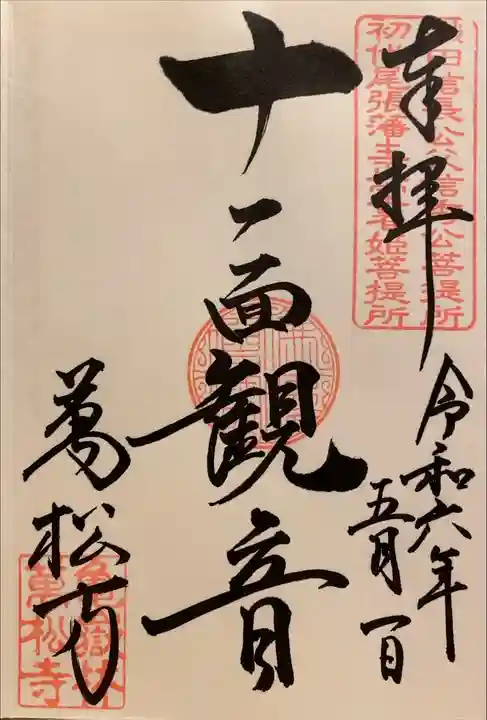 奉拝
織田信長公父信秀公菩提所
初代尾張藩主
姫菩提所
令和六年
五月一日
十一面観音
萬松寺
亀嶽林
萬松寺